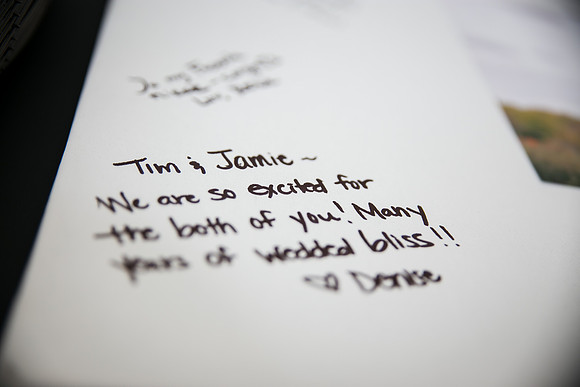 Tim & Jamie ~
We are so excited for
the both of you! Many
years of wedded bliss!!
♡ Denise